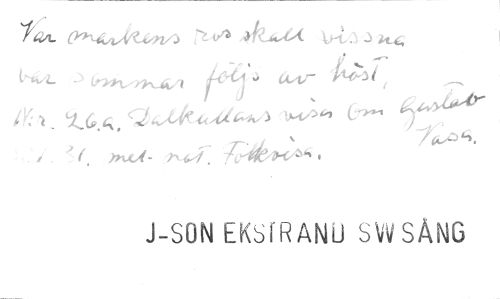 Var markens ros skall vissna
var sommar följs av höst,
N:r. 26.a. Dalkullans visa om Gustav Vasa.
31. mel. nat. Folkvisa.
J-SON EKSTRAND SW SÅNG